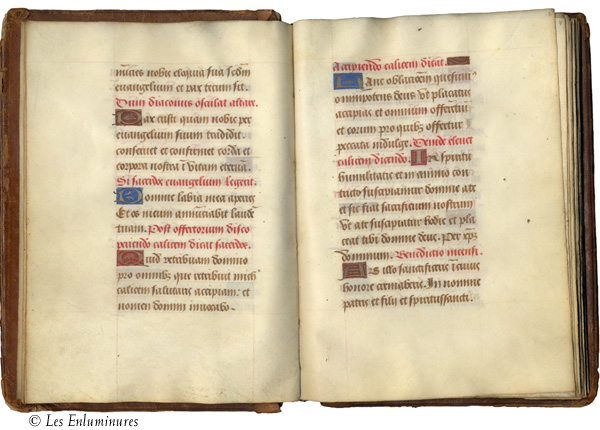 evangelium et pax tecum sit.
Dum diaconus osculat altare.
Pax cristi quam nobis per
evangelium suum tradidit.
conservet et confirmet corda et
corpora nostra in vitam eternam.
Si sacerdos evangelium legerit.
Domine labia mea aperies
Et os meum annunciabit laude
tuam. Post offertorium disco
periendo calicem dicat sacerdos.
Quid retribuam domino
pro omnibus que retribuit michi
calicem salutaris accipiam: et
nomen domini invocabo.
Accipiendo calicem dicat.
Hanc oblacionem quesumus
omnipotens deus ut placatus
accipias et omnium offerentium
et eorum pro quibus offertur
peccata indulge. Deinde elevet
calicem dicendo. In spiritu
humilitatis et in animo con
trito suscipiamur domine a te
et sic fiat sacrificium nostrum
ut a te suscipiatur hodie et pla
ceat tibi domine deus. Per xpm
dominum. Benedictio incensi.
Ab illo sanctificeris in cuius
honore cremaberis. In nomine
patris et filii et spiritussancti.
© Les Enluminures